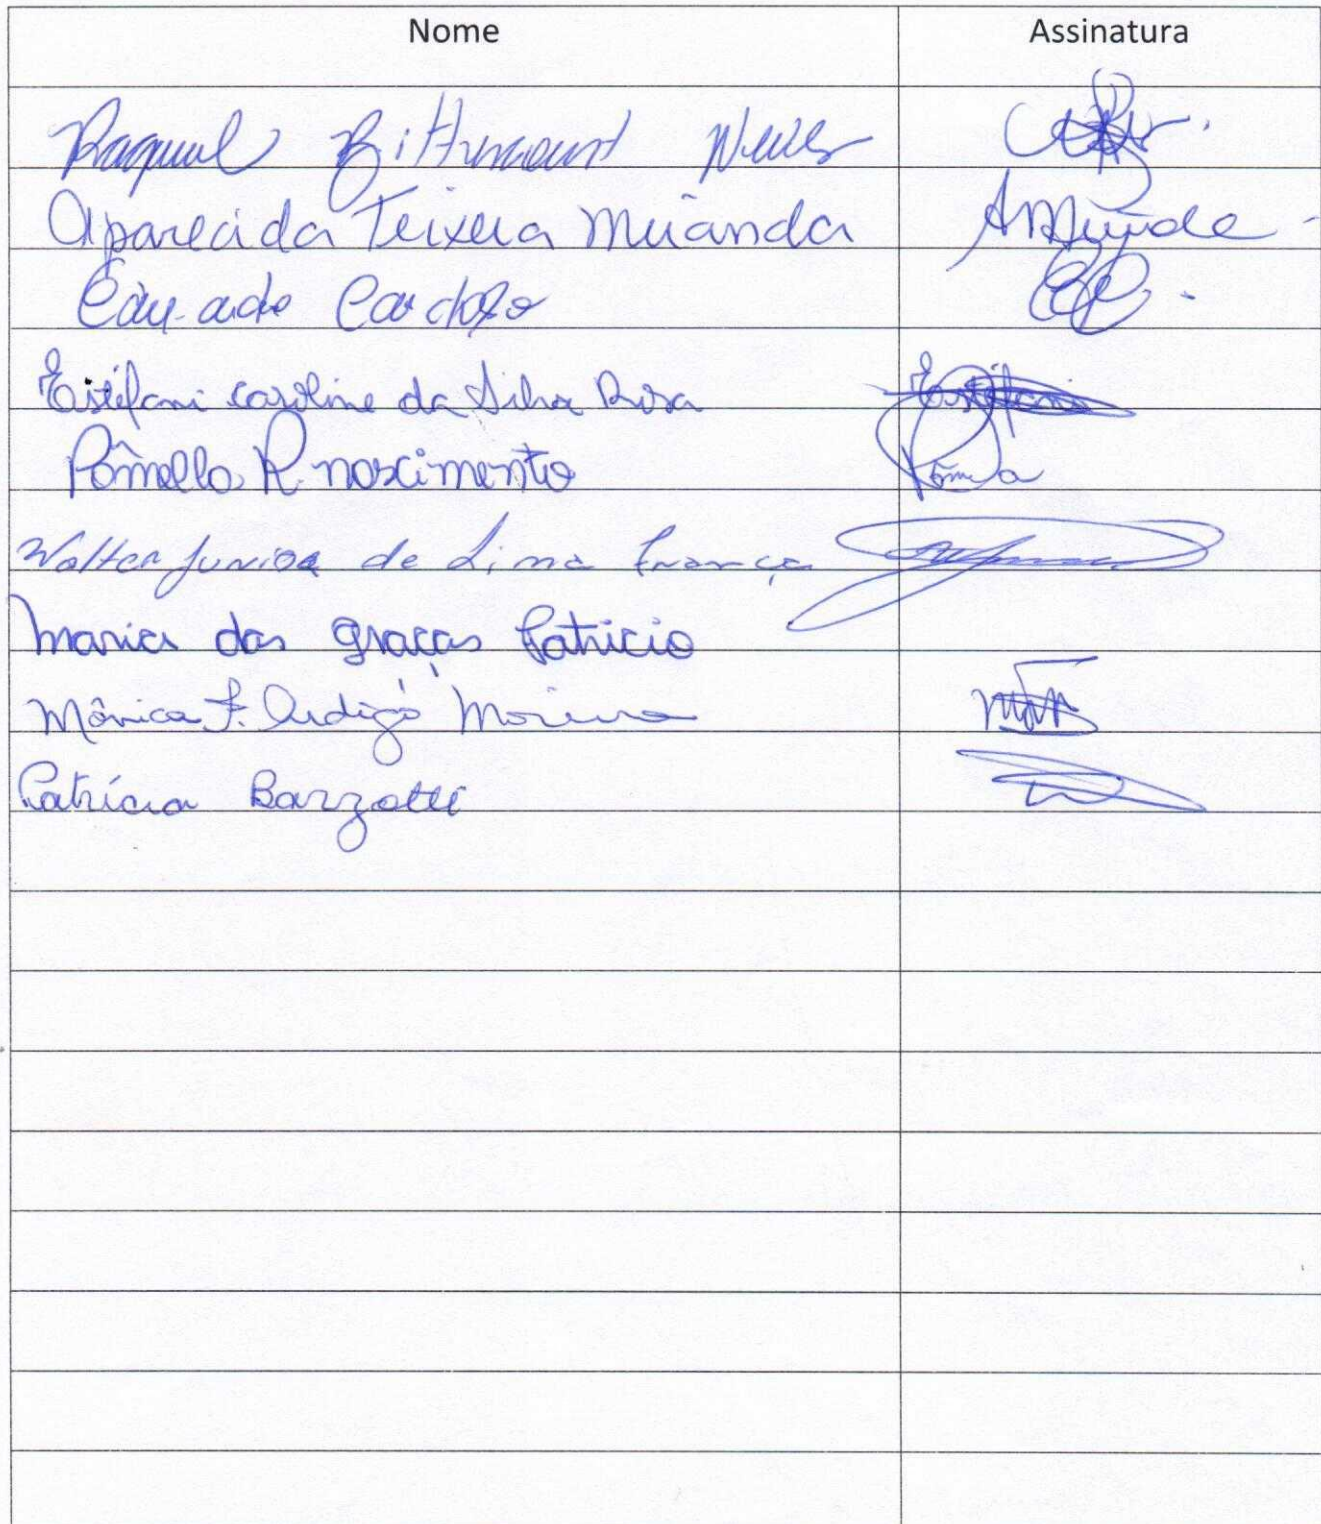 Nome Assinatura
Raquel Bittencourt
Aparecida Teixeira Miranda
Eduardo Cardozo
Estéfani caroline da Silva Rosa Estéfani
Pâmella R. nascimento
Walter Junior de Lima França
Maria das graças Patricio
Mônica F. Moreira
Patrícia Barzotti